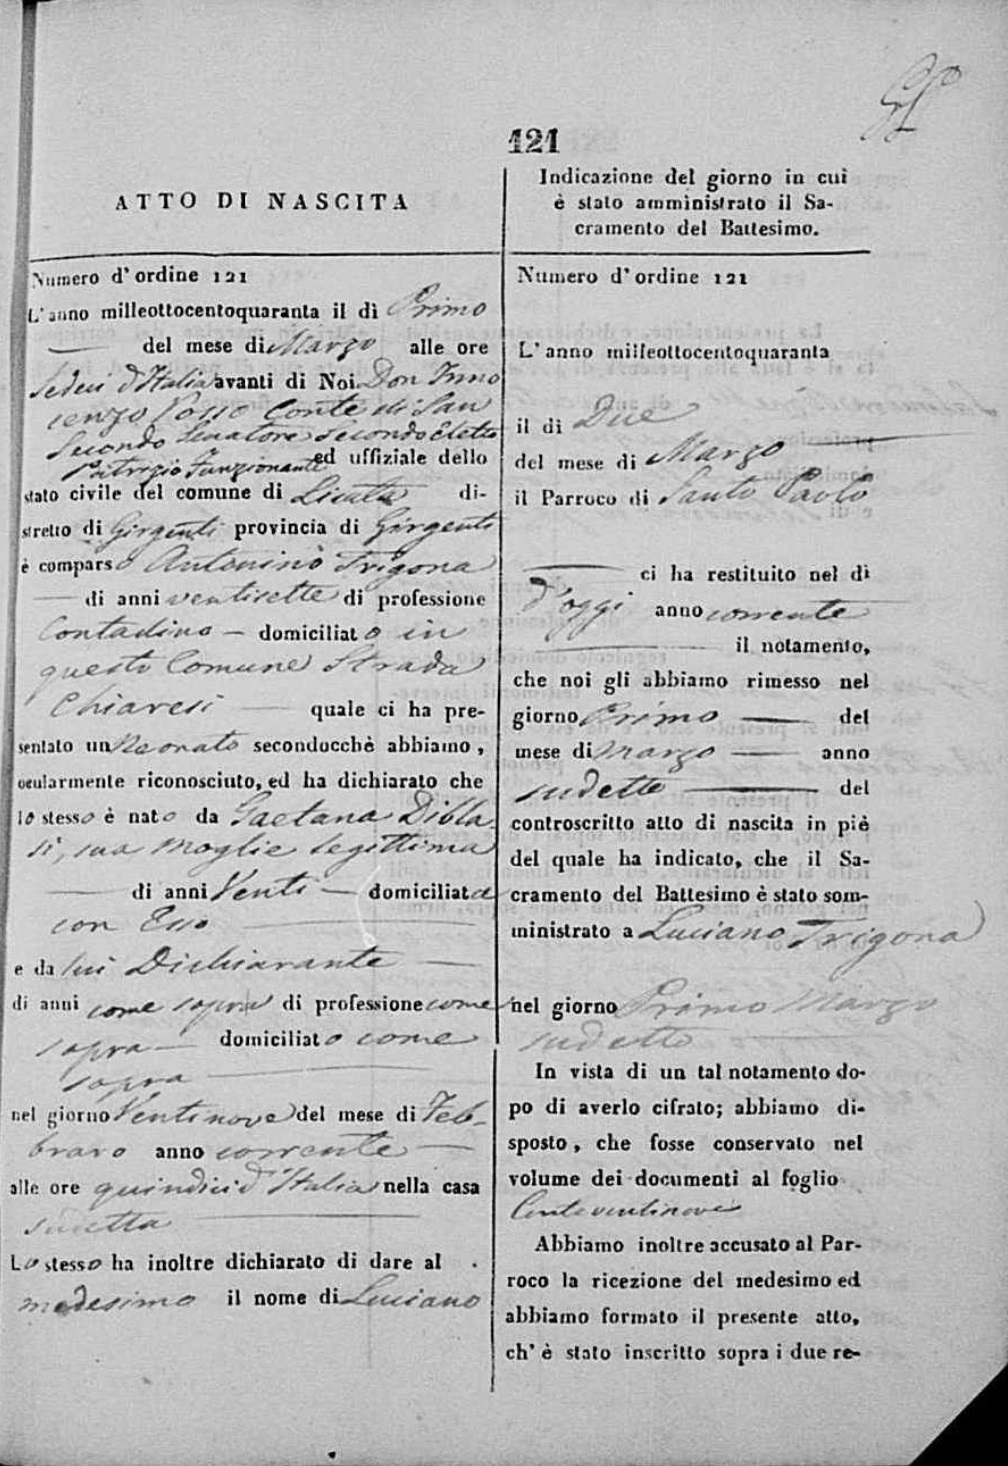 121
ATTO DI NASCITA
Numero d'ordine 121
L'anno milleottocentoquaranta il dì Primo
del mese di Marzo alle ore
Sedeci d'Italia avanti di Noi Don Inno
cenzo Conte di San
Secondo Senatore Secondo Eletto
Patrizio Funzionante ed uffiziale dello
stato civile del comune di Licata di-
stretto di Girgenti provincia di Girgenti
è comparso Antonino Trigona
di anni ventisette di professione
Contadino – domiciliato in
questo Comune Strada
Chiaresi quale ci ha pre-
sentato un Neonato secondocchè abbiamo,
ocularmente riconosciuto, ed ha dichiarato che
lo stesso è nato da Gaetana Dibla
si, sua Moglie legittima
di anni Venti – domiciliata
con Esso
e da lui Dichiarante
di anni come sopra di professione come
sopra – domiciliato come
sopra
nel giorno Ventinove del mese di Feb-
braro anno corrente
alle ore quindici d'Italia nella casa
sudetta
Lo stesso ha inoltre dichiarato di dare al
medesimo il nome di Luciano
Indicazione del giorno in cui
è stato amministrato il Sa-
cramento del Battesimo.
Numero d'ordine 121
L'anno milleottocentoquaranta
il dì Due
del mese di Marzo
il Parroco di Santo Paolo
ci ha restituito nel dì
d'oggi anno corrente
il notamento,
che noi gli abbiamo rimesso nel
giorno Primo del
mese di Marzo anno
sudetto del
controscritto atto di nascita in piè
del quale ha indicato, che il Sa-
cramento del Battesimo è stato som-
ministrato a Luciano Trigona
nel giorno Primo Marzo
sudetto
In vista di un tal notamento do-
po di averlo cifrato; abbiamo di-
sposto, che fosse conservato nel
volume dei documenti al foglio
Centoventinove
Abbiamo inoltre accusato al Par-
roco la ricezione del medesimo ed
abbiamo formato il presente atto,
ch'è stato inscritto sopra i due re-